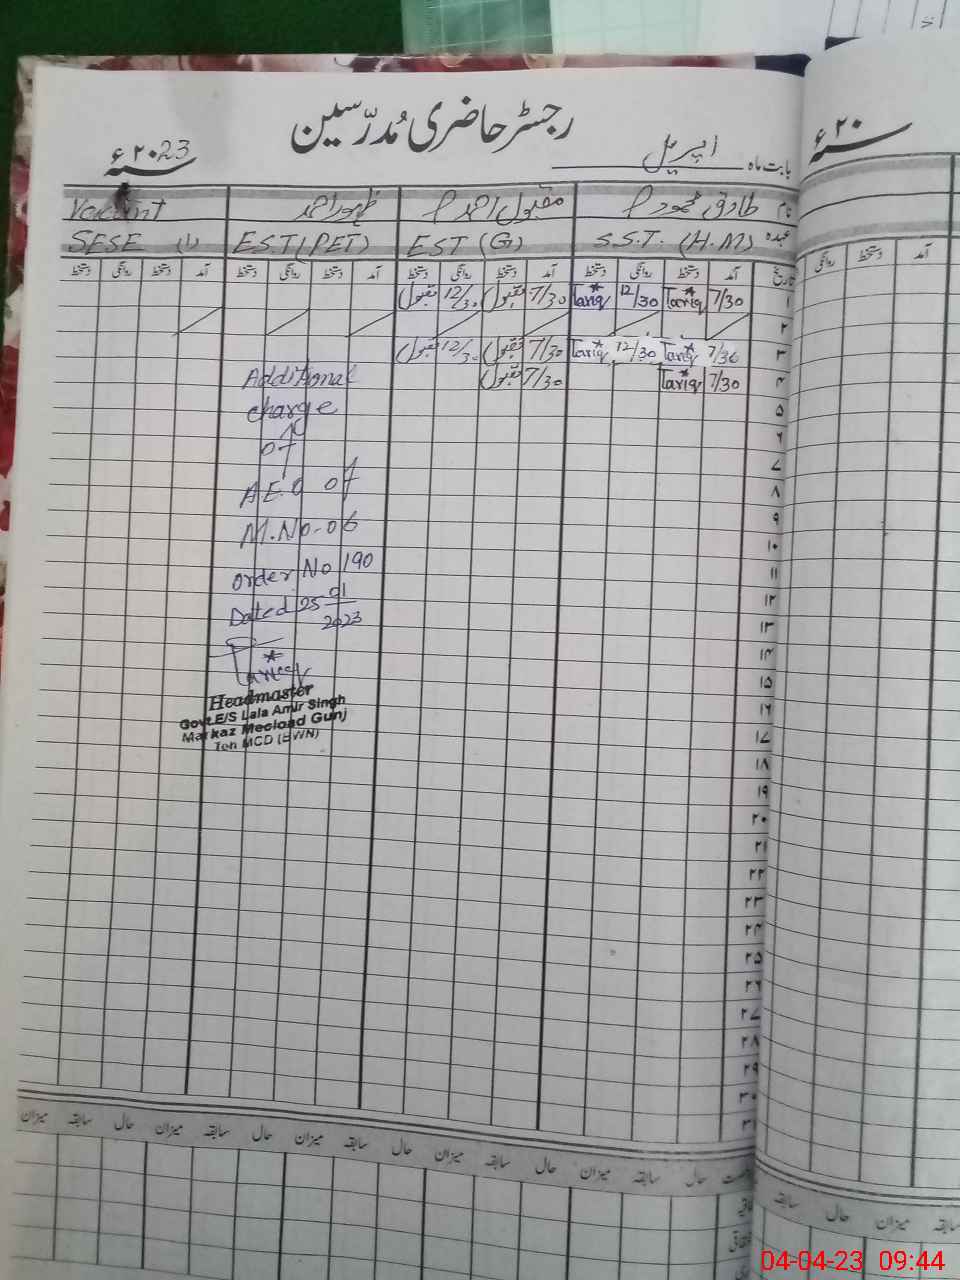 رجسٹر حاضری مُدرّسین
بابت ماہ اپریل
۲۰23ء
۲۰ء
نام طارق محمود مقبول احمد ظہور احمد Vacant
عہدہ S.S.T. (H.M) EST (G) E.S.T (PET) SESE (1)
تاریخ آمد دستخط روانگی دستخط آمد دستخط روانگی دستخط آمد دستخط روانگی دستخط آمد دستخط روانگی دستخط
آمد دستخط روانگی
۱ 7/30 Tariq 12/30 Tariq 7/30 مقبول 12/30 مقبول
۲
۳ 7/30 Tariq 12/30 Tariq 7/30 مقبول 12/30 مقبول
۴ 7/30 Tariq 7/30 مقبول
۵
۶
۷
۸
۹
۱۰
۱۱
۱۲
۱۳
۱۴
۱۵
۱۶
۱۷
۱۸
۱۹
۲۰
۲۱
۲۲
۲۳
۲۴
۲۵
۲۶
۲۷
۲۸
۲۹
۳۰
۳۱
Additional
charge
of
A.E.O of
M.No-06
order No 190
Dated 25 01
2023
Tariq
Headmaster
Govt.E/S Lala Amir Singh
Markaz Mecload Gunj
Teh MCD (BWN)
حال سابقہ میزان حال سابقہ میزان حال سابقہ میزان حال سابقہ میزان
سابقہ حال میزان سابقہ
04-04-23 09:44